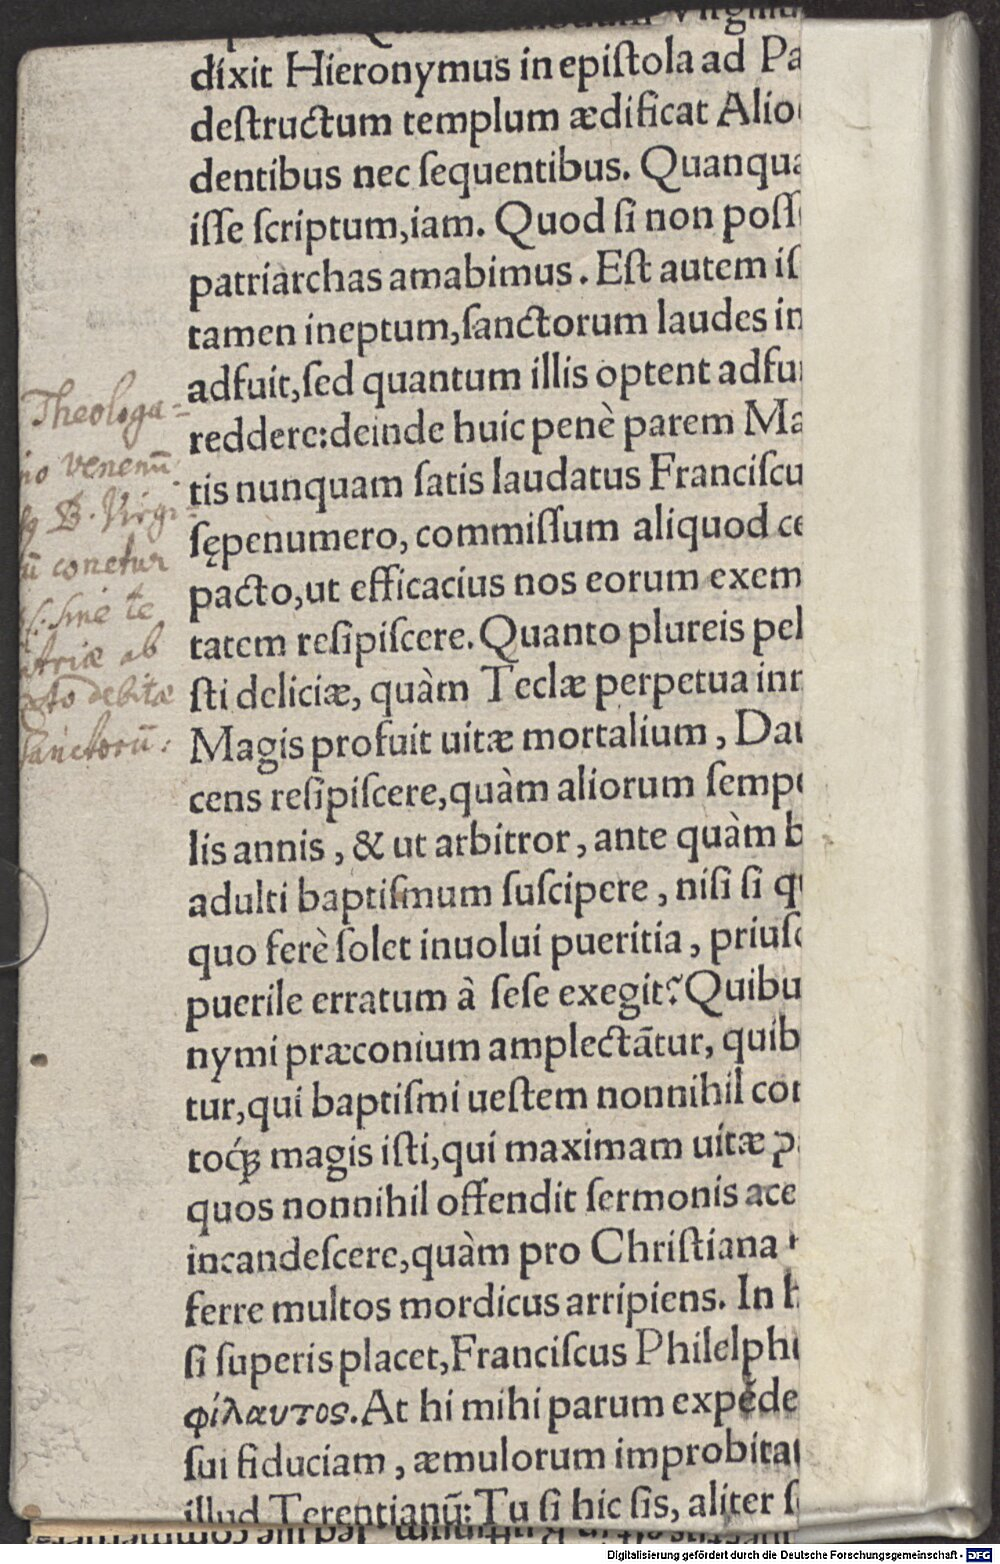 dixit Hieronymus in epiſtola ad Pa
deſtructum templum ædificat Alio
dentibus nec ſequentibus. Quanqua
iſſe ſcriptum,iam. Quod ſi non poſſ
patriarchas amabimus. Eſt autem iſ
tamen ineptum,ſanctorum laudes in
adfuit,ſed quantum illis optent adfu
reddere:deinde huic penè parem Ma
tis nunquam ſatis laudatus Franciſcu
ſępenumero, commiſſum aliquod ce
pacto,ut efficacius nos eorum exem
tatem reſipiſcere. Quanto plureis pel
ſti deliciæ, quàm Teclæ perpetua inr
Magis profuit uitæ mortalium, Dau
cens reſipiſcere,quàm aliorum ſemp
lis annis, & ut arbitror, ante quàm b
adulti baptiſmum ſuſcipere, niſi ſi q
quo ferè ſolet inuolui pueritia, priuſ
puerile erratum à ſeſe exegit? Quibu
nymi præconium amplectātur, quib
tur,qui baptiſmi ueſtem nonnihil con
toq́ꝫ magis iſti,qui maximam uitæ p
quos nonnihil offendit ſermonis ace
incandeſcere,quàm pro Chriſtiana
ferre multos mordicus arripiens. In h
ſi ſuperis placet,Franciſcus Philelphu
φίλαυτος. At hi mihi parum expẹde
ſui fiduciam, æmulorum improbitat
illud Terentianū: Tu ſi hic ſis, aliter ſ
Theologa=
no venenū
B. Virgi=
ū conetur
sine te
atriæ ab
debitæ
Sanctorū:
Digitalisierung gefördert durch die Deutsche Forschungsgemeinschaft - DFG